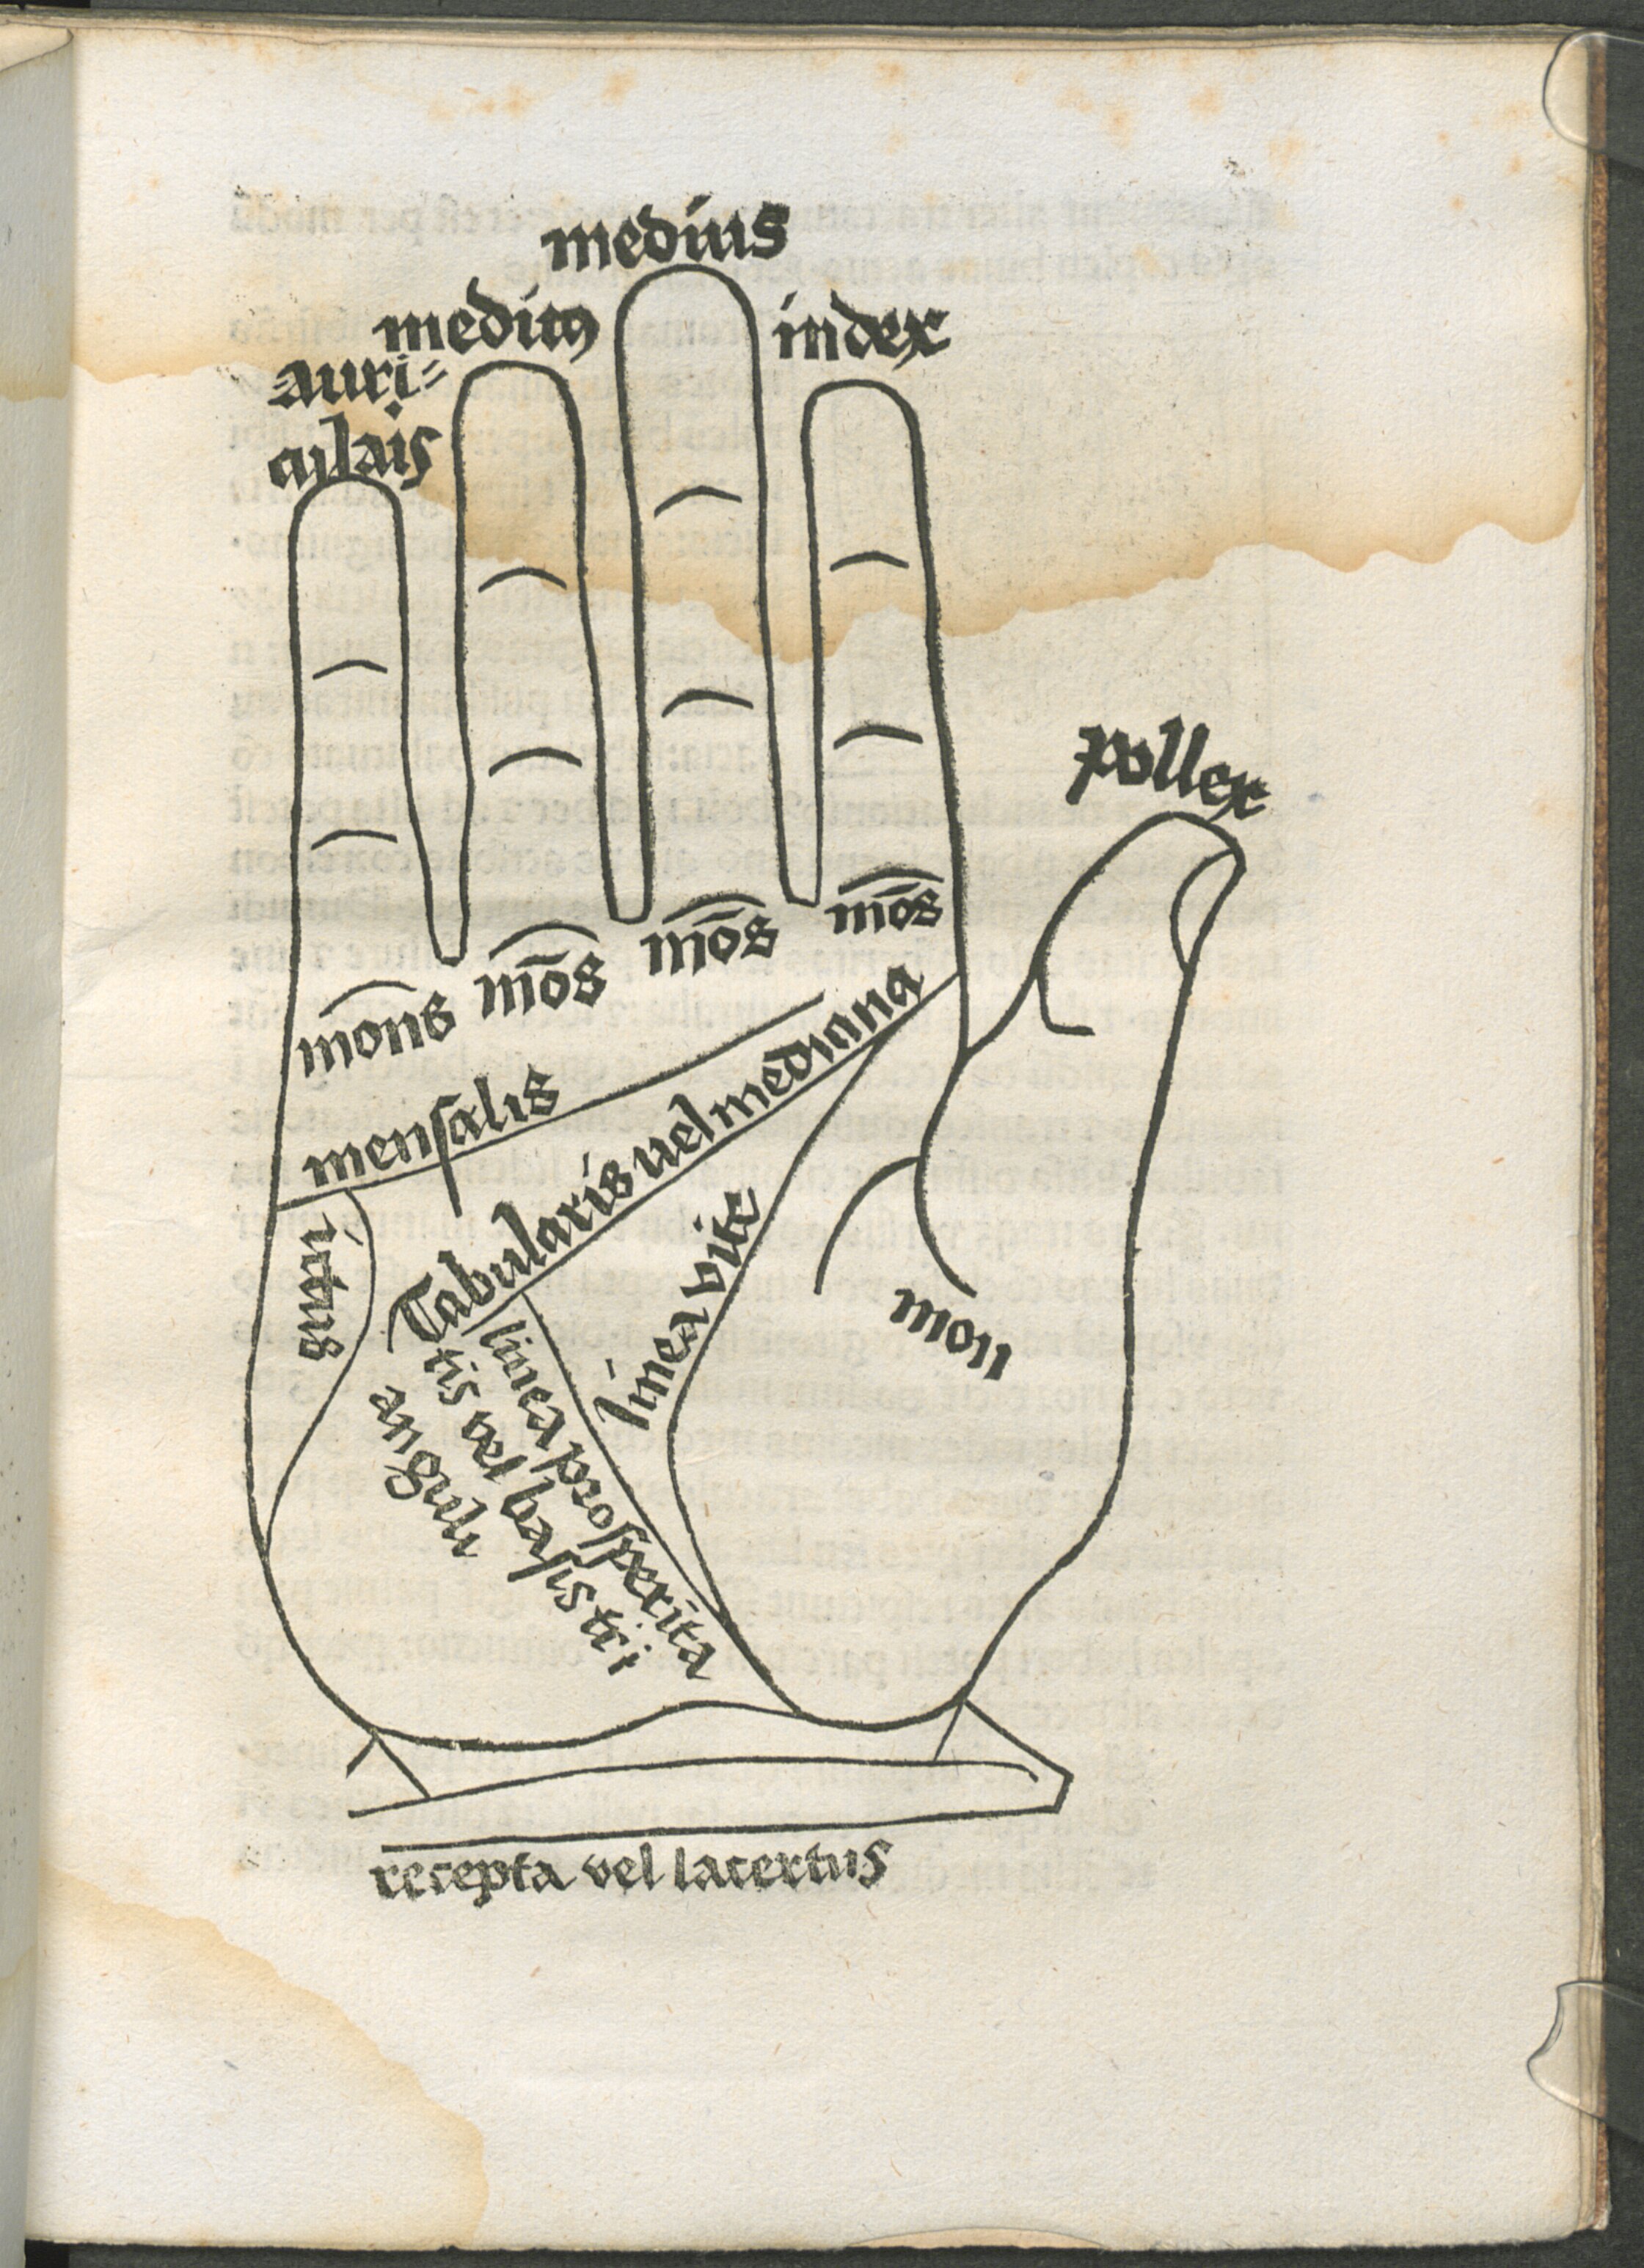 medius
medicꝰ
index
auri⸗
culais
pollex
mons
mōs
mōs
mōs
mensalis
Tabularis uel mediana
ictus
linea vite
linea prosperita
tis vel basis tri
anguli
mon
recepta vel lacertus